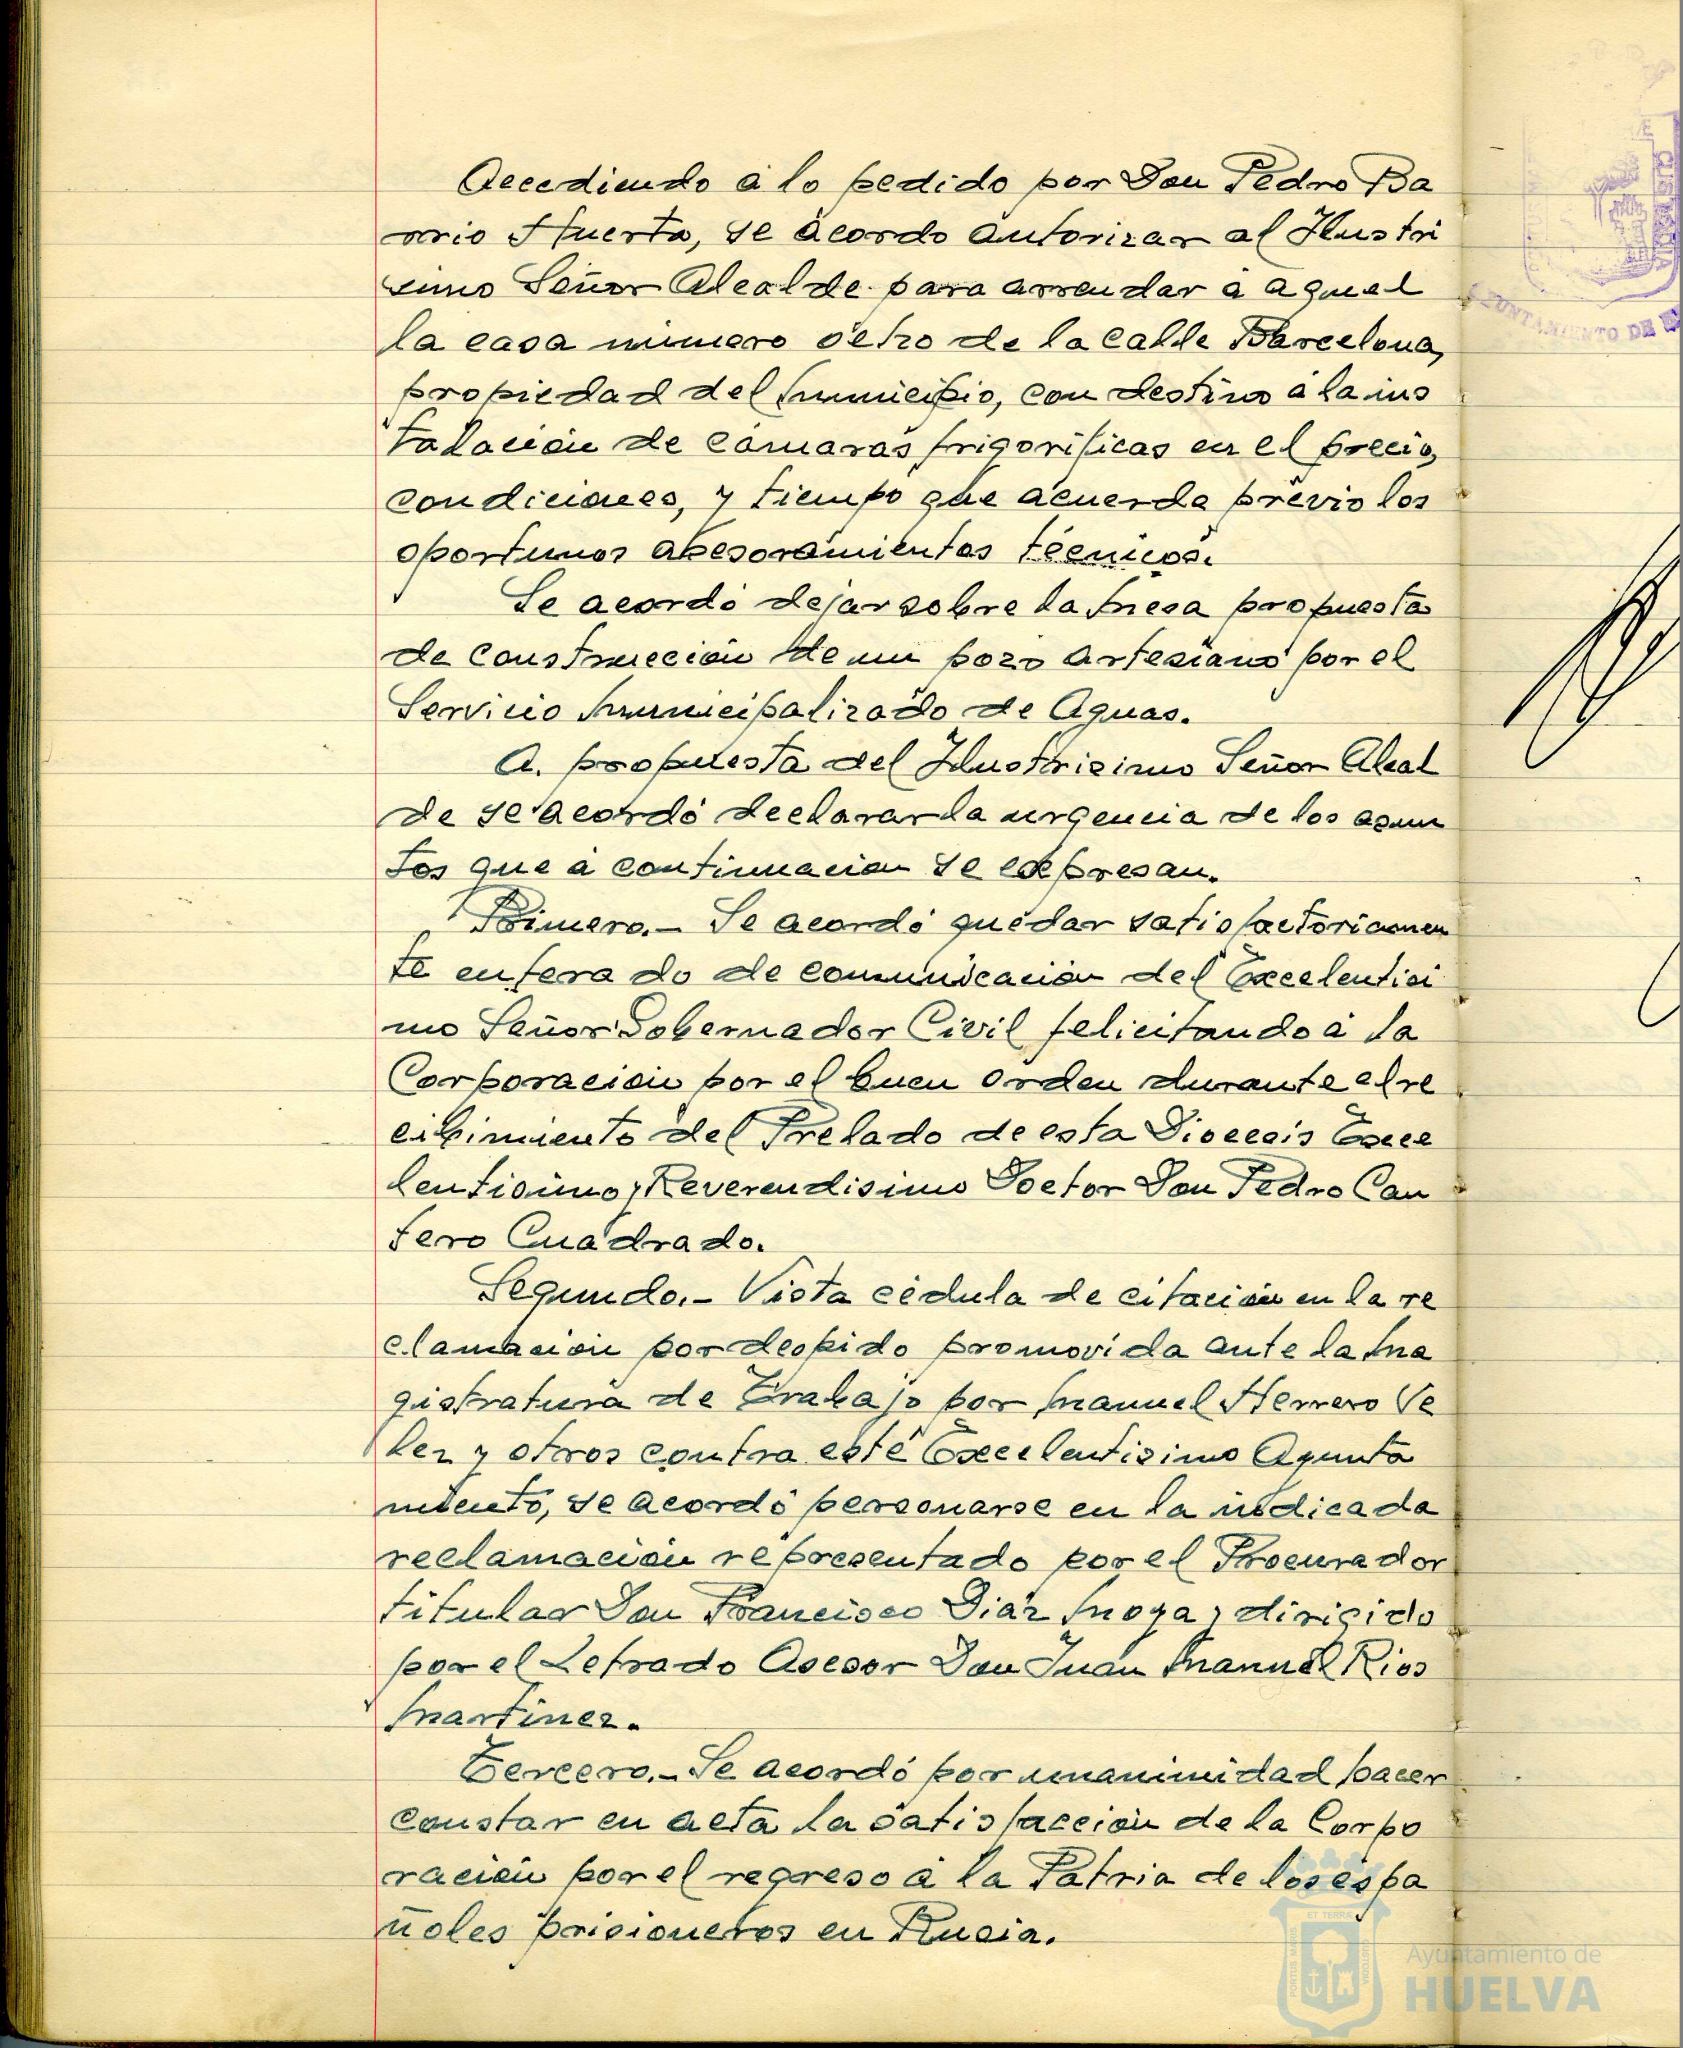 Accediendo á lo pedido por Don Pedro Ba
rrio Huerta, se acordo autorizar al Ilustri
simo Señor Alcalde para arrendar á aquel
la casa número ocho de la calle Barcelona,
propiedad del Municipio, con destino á la ins
talación de cámaras frigorificas en el precio,
condiciones, y tiempo que acuerda previo los
oportunos asesoramientos técnicos.
Se acordó dejar sobre la Mesa propuesta
de construcción de un pozo artesiano por el
Servicio Municipalizado de Aguas.
A. propuesta del Ilustrisimo Señor Alcal
de se acordó declarar la urgencia de los asun
tos que á continuacion se expresan.
Primero.- Se acordó quedar satisfactoriamen
te enterado de comunicación del Excelentisi
mo Señor Gobernador Civil felicitando á la
Corporación por el buen orden durante el re
cibimiento del Prelado de esta Diocesis Exce
lentisimo y Reverendisimo Doctor Don Pedro Can
tero Cuadrado.
Segundo.- Vista cédula de citación en la re
clamación por despido promovida ante la Ma
gistratura de Trabajo por Manuel Herrero Ve
lez y otros contra este Excelentisimo Ayunta
miento, se acordó personarse en la indicada
reclamación representado por el Procurador
titular Don Francisco Diáz Moya y dirigido
por el Letrado Asesor Don Juan Manuel Rios
Martinez.
Tercero.- Se acordó por unanimidad hacer
constar en acta la satisfacción de la Corpo
ración por el regreso á la Patria de los espa
ñoles prisioneros en Rusia.
CUSTODIA
AYUNTAMIENTO DE
PORTUS MARIS
ET TERRÆ
CUSTODIA
Ayuntamiento de
HUELVA